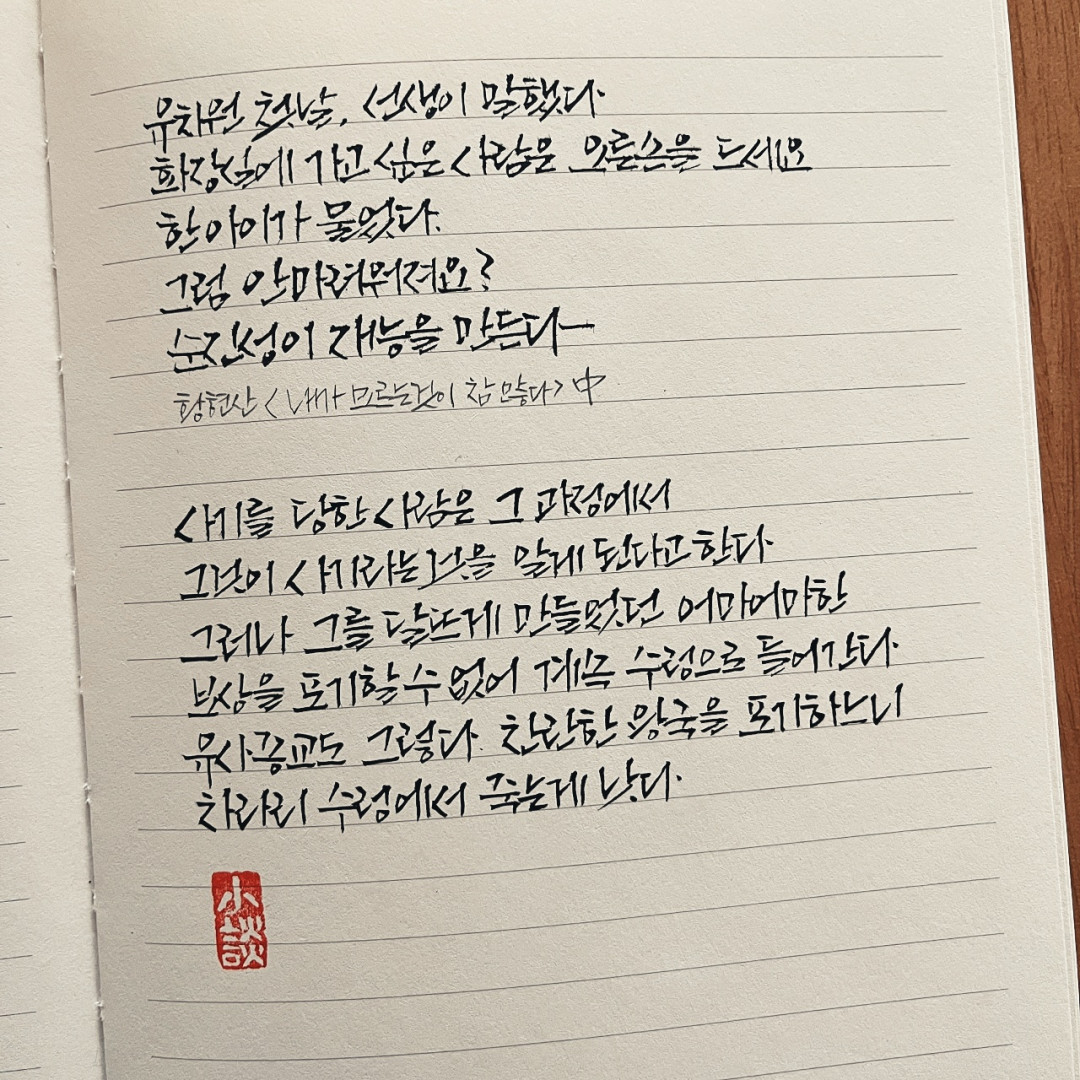 유치원 첫날, 선생이 말했다.
화장실에 가고 싶은 사람은 오른손을 드세요
한 아이가 물었다.
그럼 안 마려워져요?
순진성이 재능을 만든다—
황현산 <내가 모르는 것이 참 많다> 中
사기를 당한 사람은 그 과정에서
그것이 사기라는 것을 알게 된다고 한다.
그러나 그를 달뜨게 만들었던 어마어마한
보상을 포기할 수 없어 계속 수렁으로 들어간다.
유사종교도 그렇다. 찬란한 왕국을 포기하느니
차라리 수렁에서 죽는게 낫다.
小談